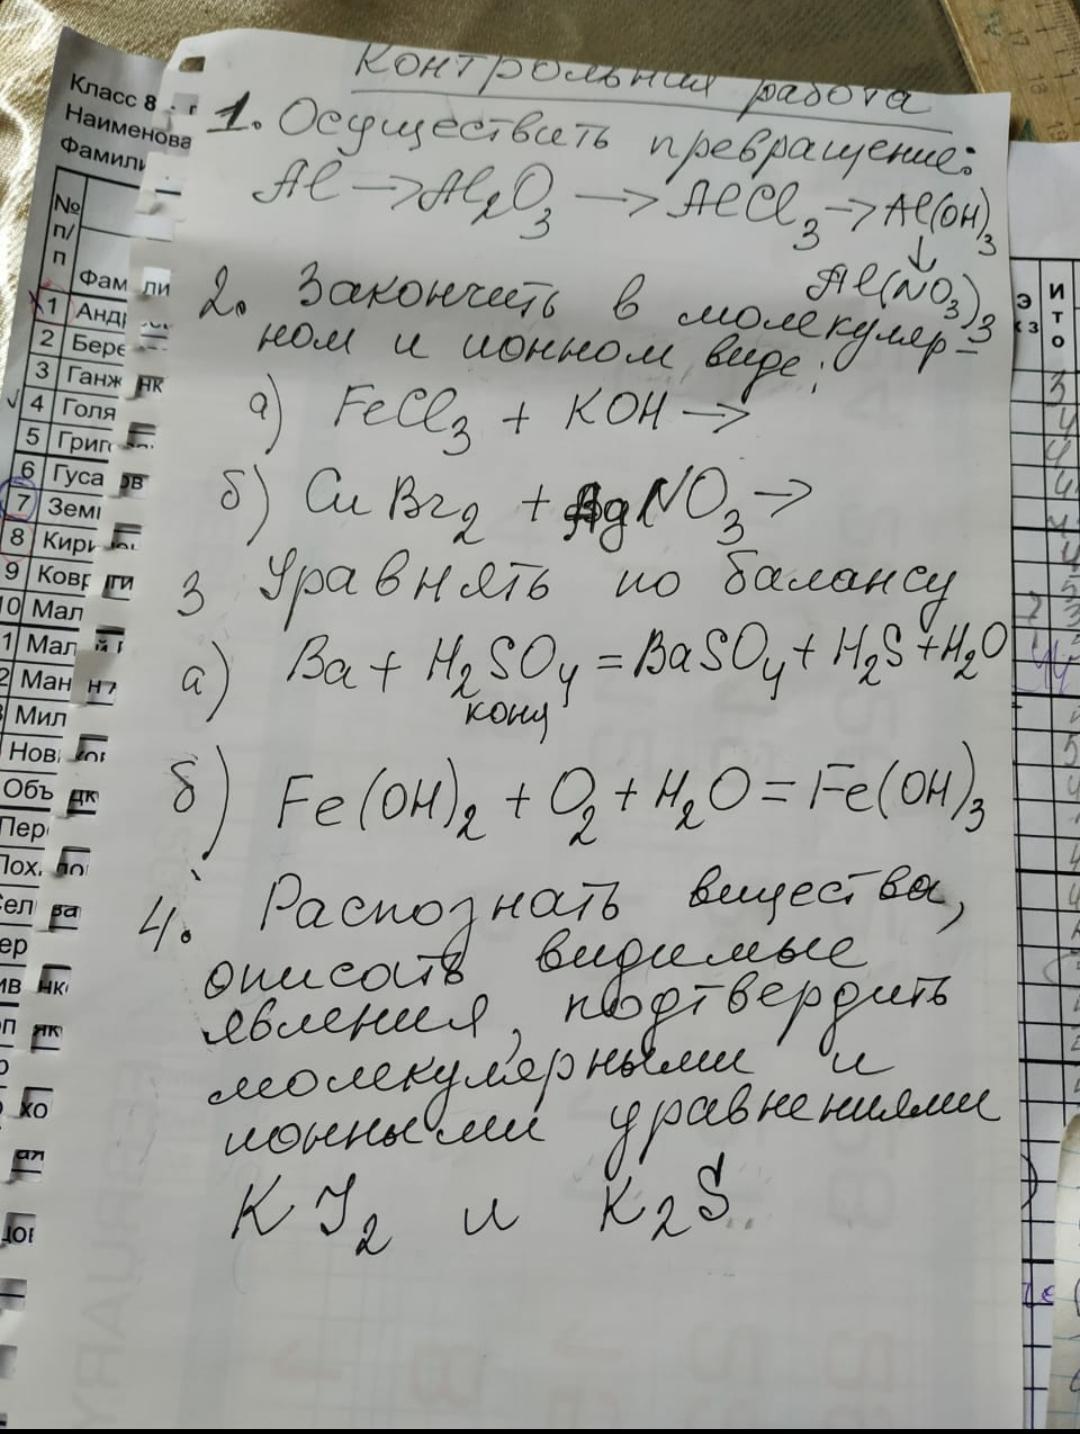 Контрольная работа
1. Осуществить превращение:
Al → Al₂O₃ → AlCl₃ → Al(OH)₃
↓
Al(NO₃)₃
2. Закончить в молекуляр-
ном и ионном виде:
а) FeCl₃ + KOH →
б) CuBr₂ + AgNO₃ →
3 Уравнять по балансу
а) Ba + H₂SO₄ = BaSO₄ + H₂S + H₂O
конц
б) Fe(OH)₂ + O₂ + H₂O = Fe(OH)₃
4. Распознать вещества,
описать видимые
явления, подтвердить
молекулярными и
ионными уравнениями
KJ₂ и K₂S
Класс 8
Наименова
Фамили
№
п/
п
Фам
ли
1 Анд
2 Бере
3 Ганж
нк
4 Голя
5 Григ
6 Гуса
ов
7 Земл
8 Кири
9 Ковр
ги
10 Мал
Мал
Ман
Мил
Нов
Объ
Пер
Пох
по
ва
нк
хо
Э
Ито